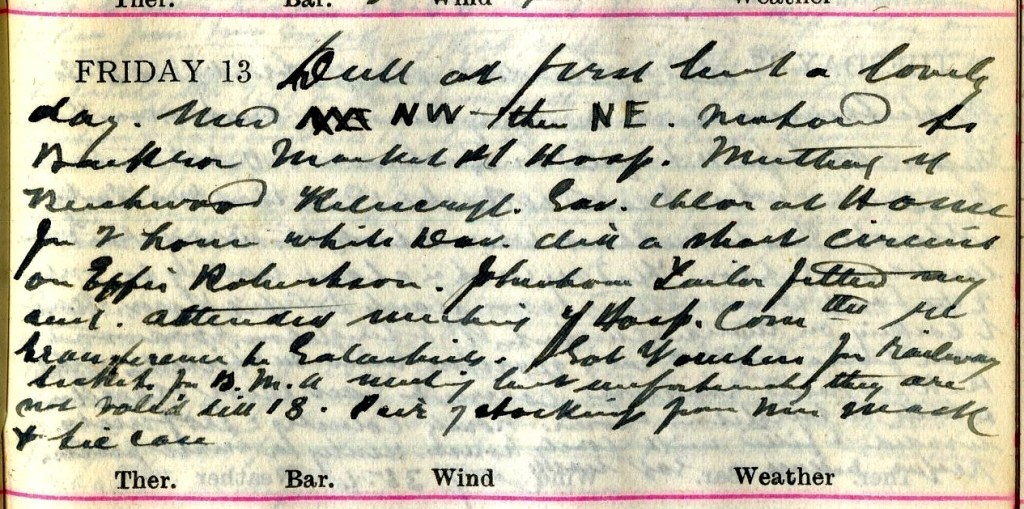 Ther. Bar. Wind Weather
FRIDAY 13 Dull at first but a lovely
day. Wind NW then NE. Motored to
Market Pl Hosp. Meeting of
. Gav. chlor at Home
for 2 hours while Dav. did a short circuit
on Effie Robertson. Johnstone Tailor fitted my
suit. Attended meeting of Hosp. Comttee re
transference to Galashiels. Got Vouchers for Railway
tickets for B.M.A meeting but unfortunately they are
not valid till 18. Pair of stockings from Mrs Mack
& tie case
Ther. Bar. Wind Weather